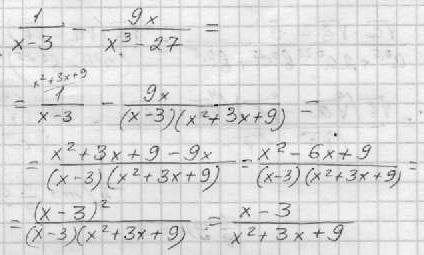 1/(x-3) - 9x/(x³-27) =
= 1/(x-3) (x²+3x+9) - 9x/((x-3)(x²+3x+9)) =
= (x²+3x+9-9x)/((x-3)(x²+3x+9)) = (x²-6x+9)/((x-3)(x²+3x+9)) =
= (x-3)²/((x-3)(x²+3x+9)) = (x-3)/(x²+3x+9)